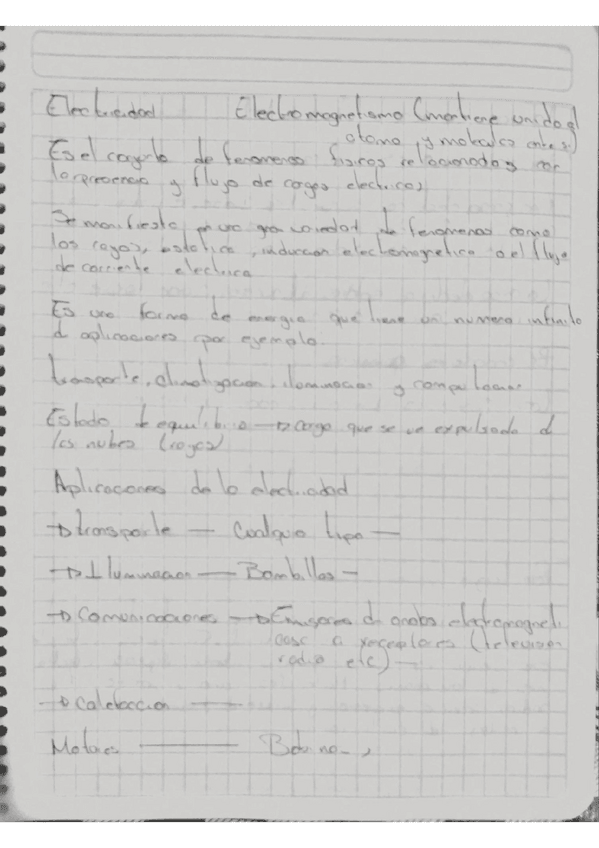 Electricidad Electromagnetismo (mantiene unido el
atomo y molecula entre si)
Es el conjunto de fenomenos fisicos relacionados con
la presencia y flujo de cargas electricas
Se manifiesta en una gran variedad de fenomenos como
los rayos, estatica, induccion electromagnetica o el flujo
de corriente electrica
Es una forma de energia que tiene un numero infinito
d aplicaciones por ejemplo.
transporte, climatizacion, iluminacion y
Estado de equilibrio → carga que se ve expulsada d
las nubes (rayos)
Aplicaciones de la electricidad
→ transporte — Cualquier tipo —
→ Iluminacion — Bombillas —
→ Comunicaciones → de ondas electromagneti
a receptores (television
radio etc) —
→ Calefaccion —
Motores —